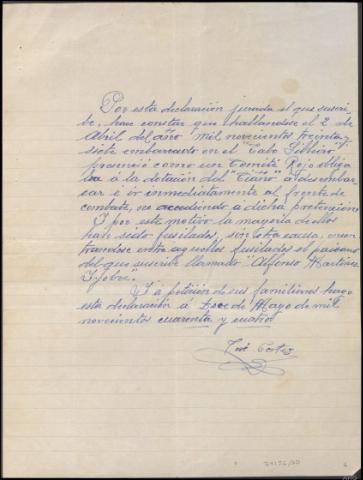 Por esta declaración jurada el que suscri-
be, hace constar que hallandose el 2 de
Abril del año mil novecientos treinta y
siete embarcado en el "Cabo Silleiro"
presenció como un Comité Rojo obliga-
ba á la dotación del "Ciaño" a desembar-
car é ir inmediatamente al frente de
combate, no accediendo a dicha pretención
Y por este motivo la mayoria de ellos
han sido fusilados, sin otra causa, encon-
trandose entre aquellos fusilados el paisano
del que suscribe llamado "Alfonso Martinez
Y a petición de sus familiares hago
esta declaración á doce de Mayo de mil
novecientos cuarenta y cuatro
José Cortés